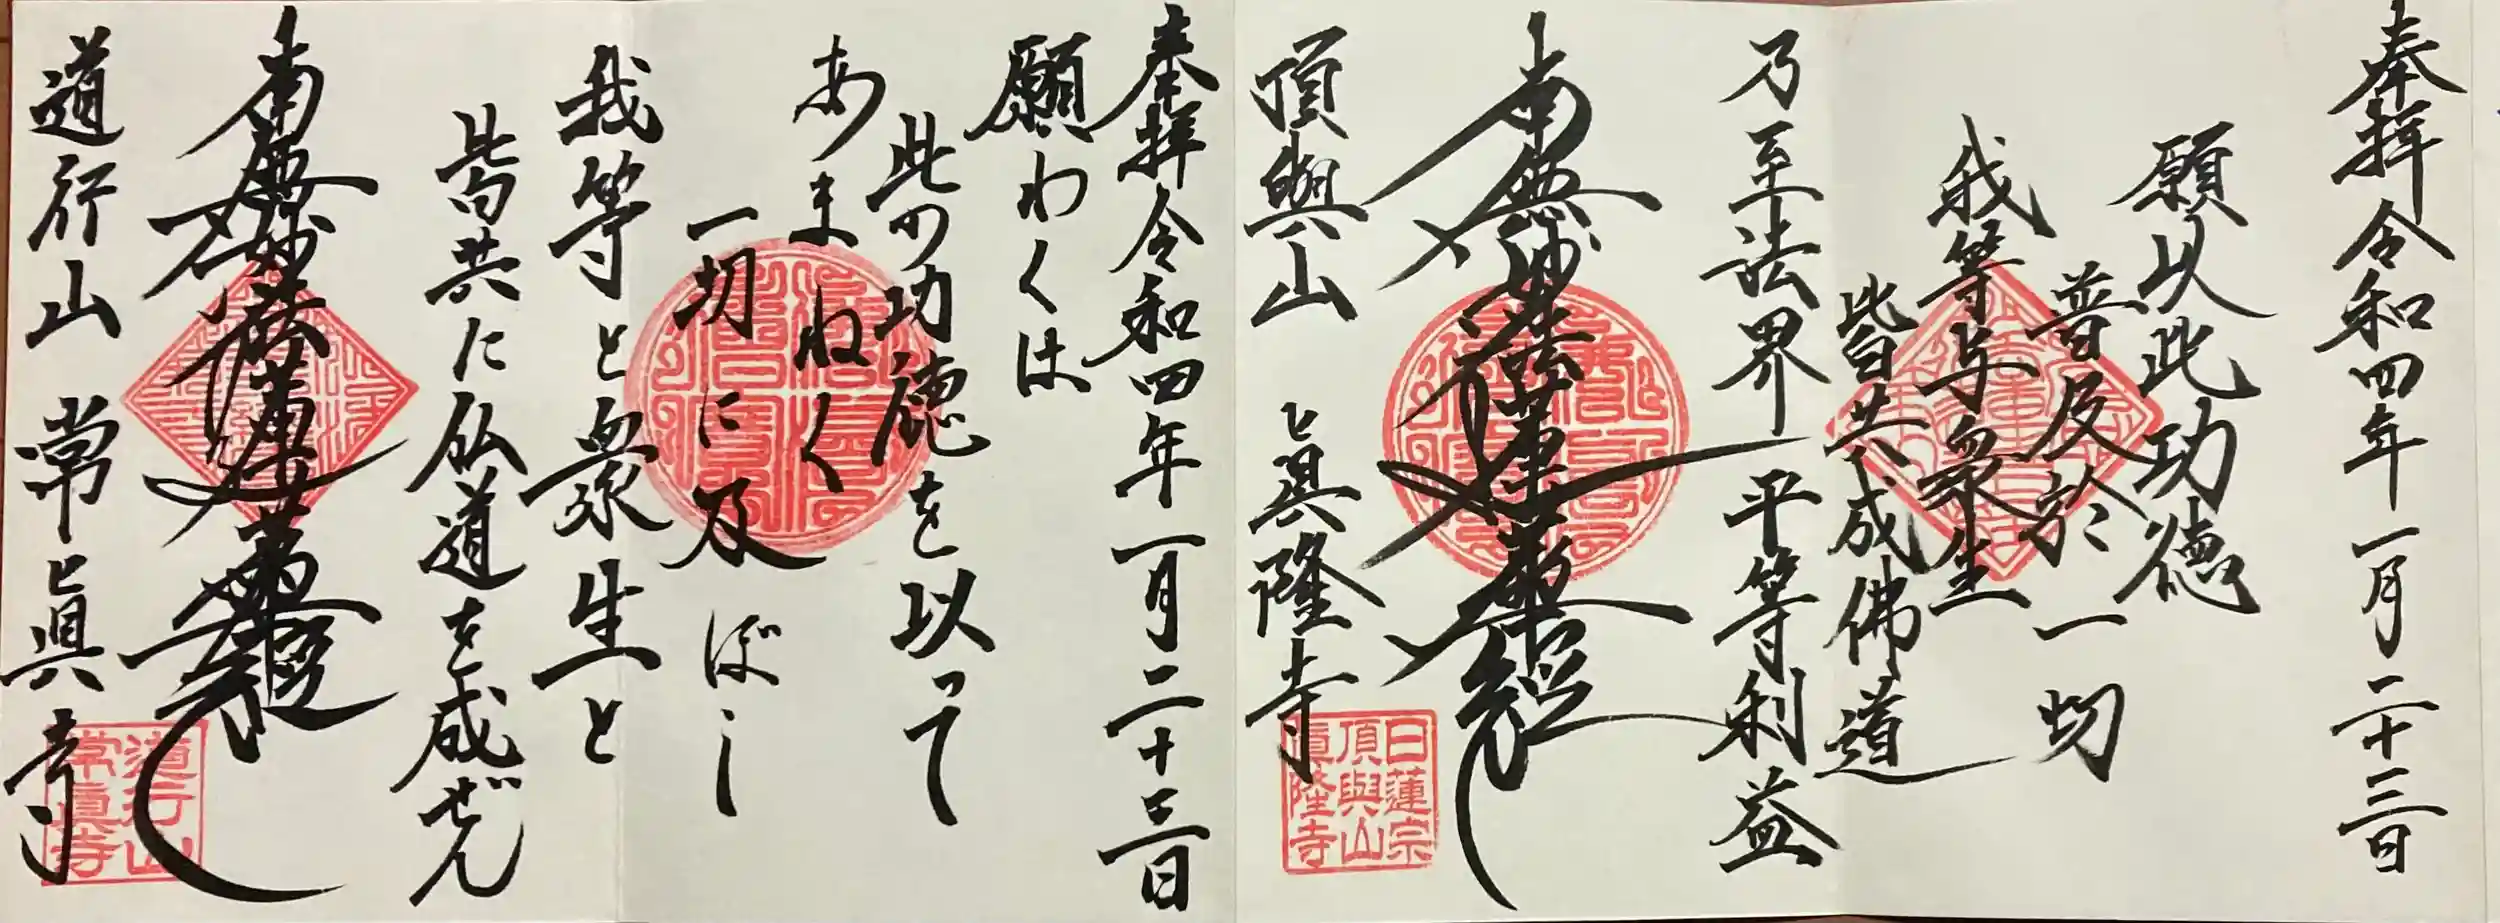 奉拝 令和四年一月二十三日
願以此功徳
普及於一切
我等与衆生
皆共成佛道
乃至法界 平等利益
南無妙法蓮華経
頂輿山 眞隆寺
日蓮宗
頂輿山
眞隆寺
奉拝 令和四年一月二十三日
願わくは
此の功徳を以って
あまねく
一切に及ぼし
我等と衆生と
皆共に仏道を成ぜん
南無妙法蓮華経
道行山 常眞寺
道行山
常眞寺